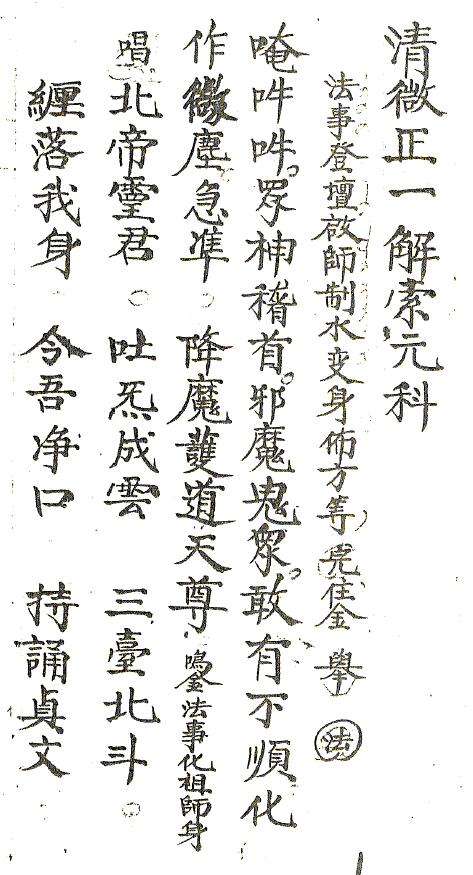 清微正一解索元科
法事登壇啟師制水变身佈方等完住金 舉 法
唵吽吽。眾神稽首。邪魔鬼眾。敢有不順化
作微塵急準。降魔護道天尊 鳴金法事化祖師身
唱北帝靈君。吐炁成雲 三臺北斗。
纏落我身。令吾净口 持誦貞文